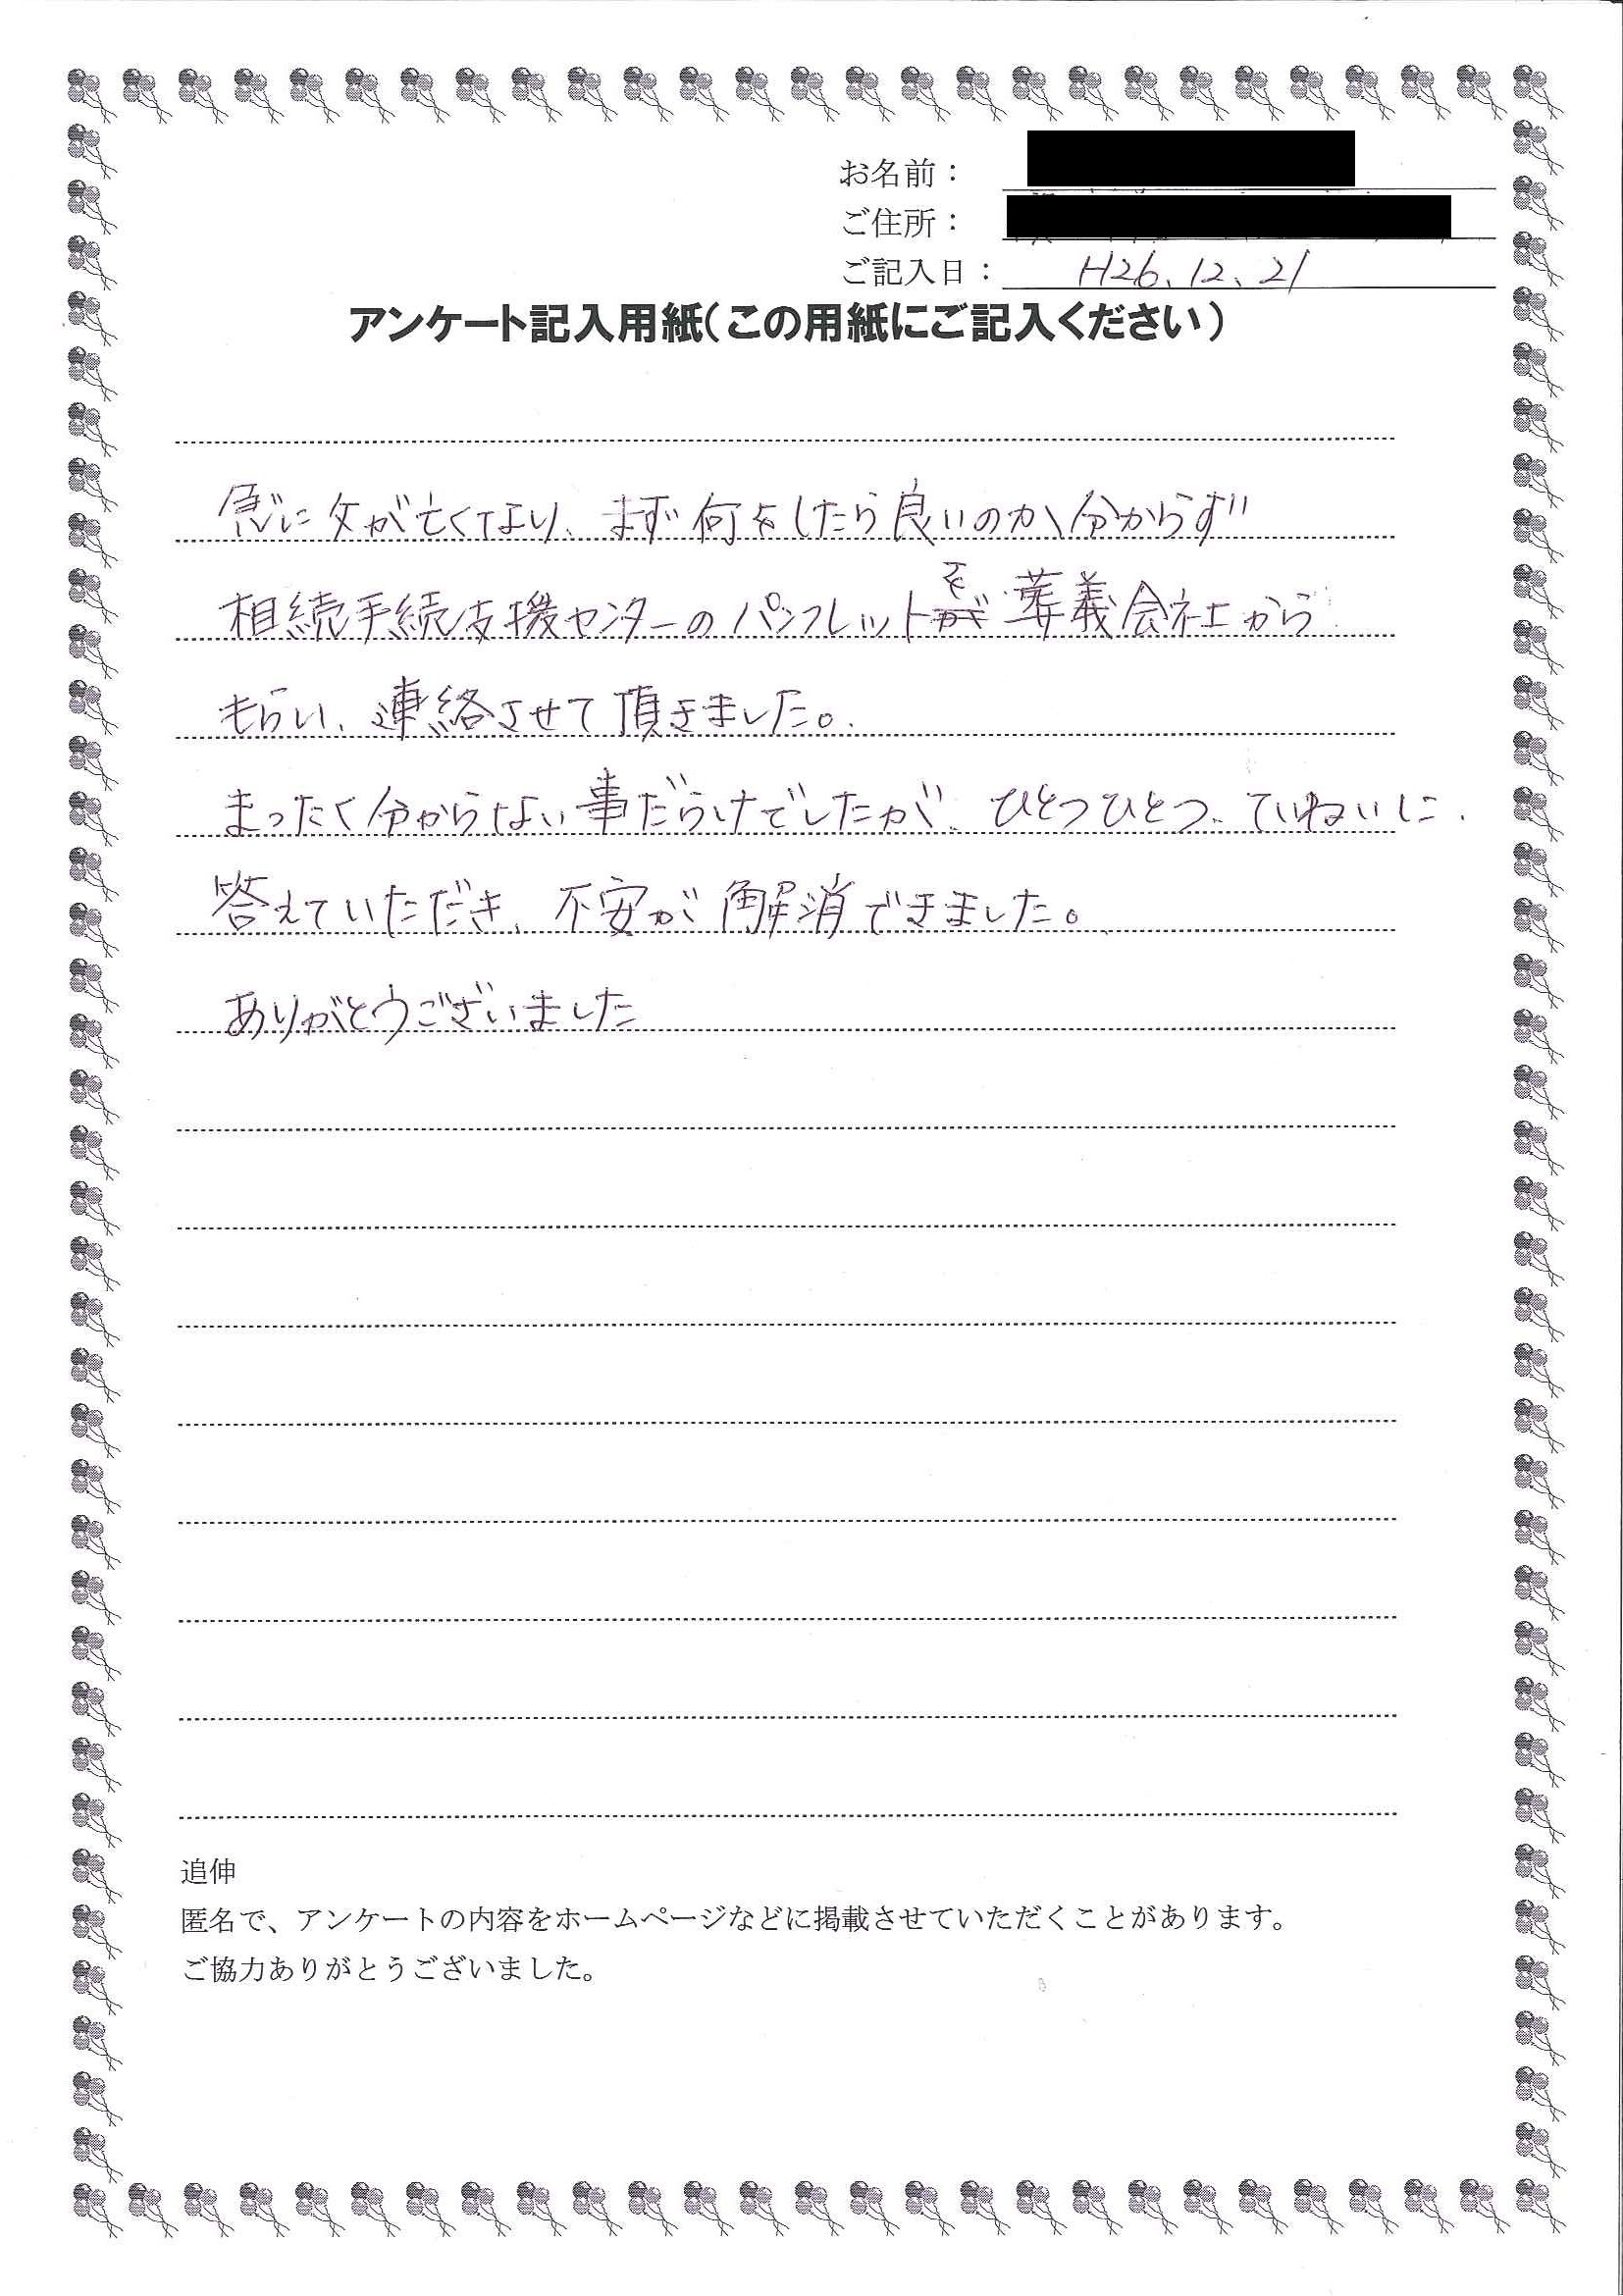 お名前：
ご住所：
ご記入日： H26、12、21
アンケート記入用紙（この用紙にご記入ください）
急に父が亡くなり、まず何をしたら良いのか分からず
相続手続支援センターのパンフレットを葬義会社から
もらい、連絡させて頂きました。
まったく分からない事だらけでしたが、ひとつひとつ、ていねいに
答えていただき、不安が解消できました。
ありがとうございました
追伸
匿名で、アンケートの内容をホームページなどに掲載させていただくことがあります。
ご協力ありがとうございました。